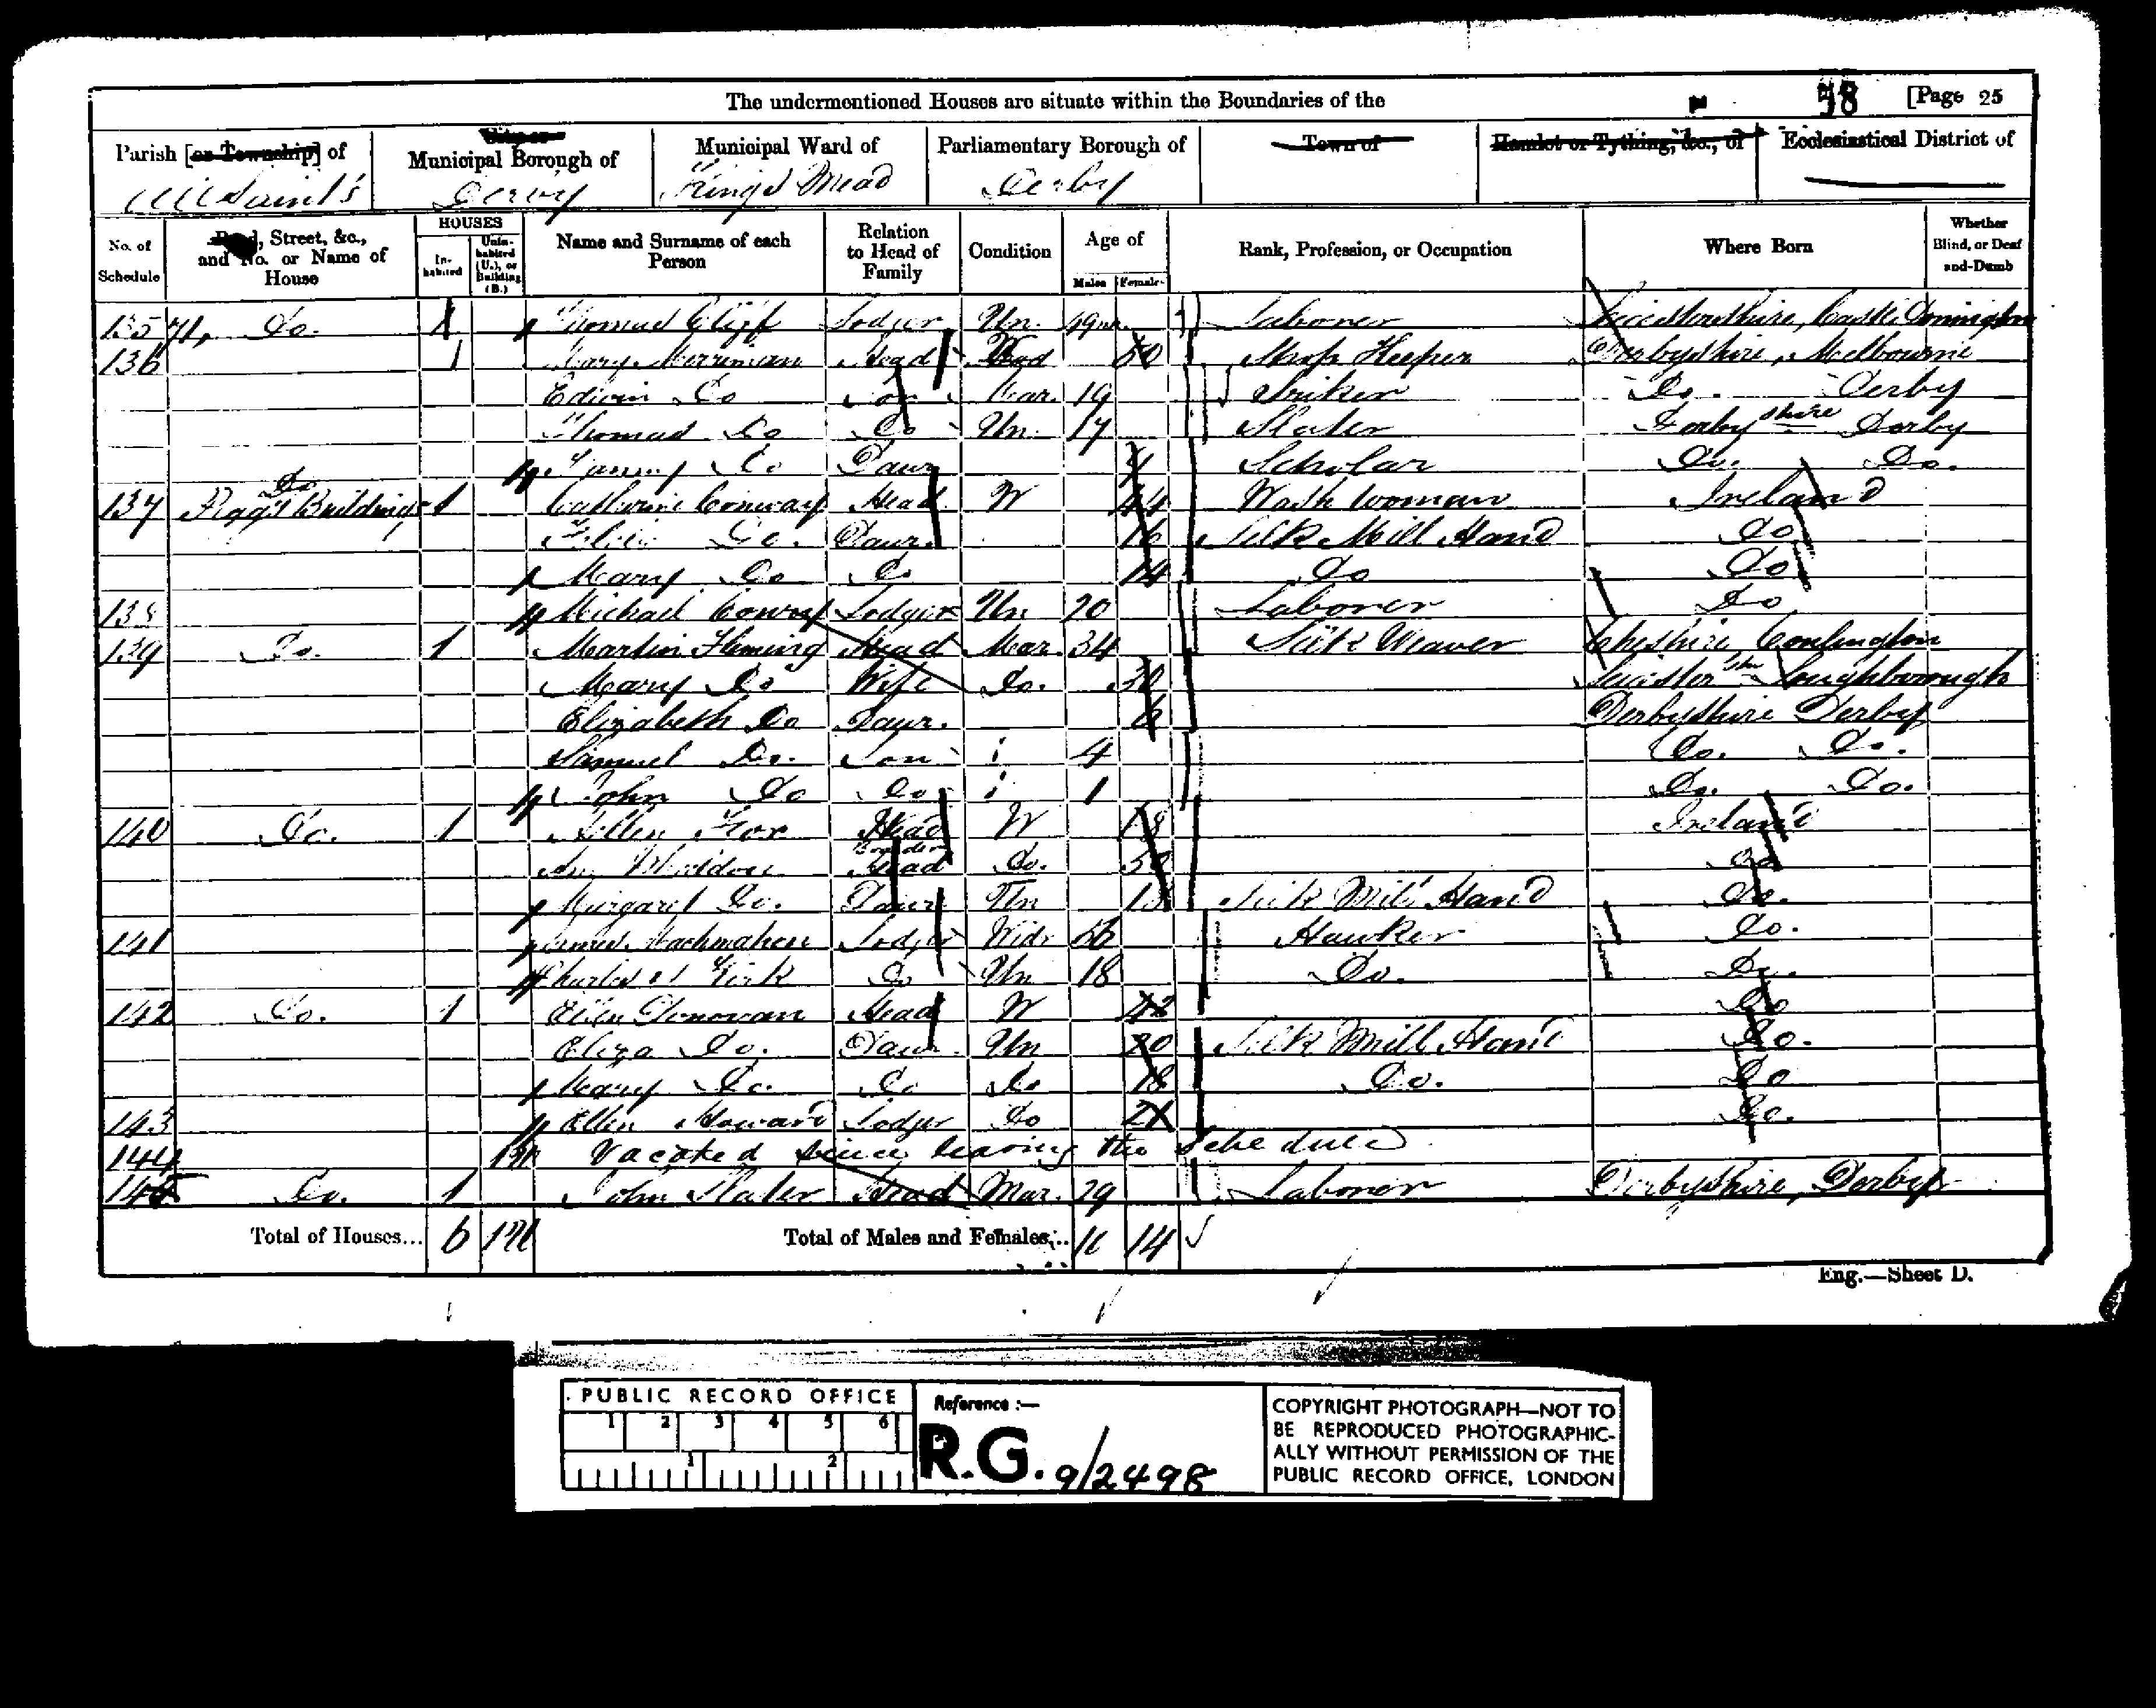 The undermentioned Houses are situate within the Boundaries of the 58 [Page 25
Parish [or Township] of Municipal Borough of Municipal Ward of Parliamentary Borough of Town of Hamlet or Tything, &c., of Ecclesiastical District of
All Saint's Derby King's Mead Derby
No. of Schedule Road, Street, &c., and No. or Name of House HOUSES Inhabited Uninhabited (U.), or Building (B.) Name and Surname of each Person Relation to Head of Family Condition Age of Males Females Rank, Profession, or Occupation Where Born Whether Blind, or Deaf-and-Dumb
135 71, Do. 1 Thomas Cliff Lodger Un. Laborer Leicestershire, Castle Donington
136 1 Mary Merriman Head Wid 50 Shop Keeper Derbyshire, Melbourne
Edwin Do Son Mar. 19 Striker Do. Derby
Thomas Do Do Un. 17 Slater Derbyshire Derby
Fanny Do Daur Scholar Do. Do.
137 Do Flagg's Buildings 1 Catherine Conway Head W 44 Wash Woman Ireland
Do. Daur. 16 Silk Mill Hand Do
Mary Do Do 14 Do Do
138 Michael Lodger Un 20 Laborer Do
139 Do. 1 Martin Fleming Head Mar. 34 Silk Weaver Cheshire, Conlington
Mary Do Wife Do. 30 Leicestershire Loughborough
Elizabeth Do Daur. 6 Derbyshire Derby
Samuel Do. Son 4 Do. Do.
John Do Do 1 Do. Do.
140 Do. 1 Fox Head W Ireland
Boarder Head Do. Do
Margaret Do. Daur Un 18 Silk Mill Hand Do.
141 James Lodger Widr 56 Hawker Do.
Charles Kirk Do Un 18 Do. Do.
142 Do. 1 Ellen Donowan Head W 42 Do
Eliza Do. Daur. Un 20 Silk Mill Hand Do.
Mary Do. Do Do 18 Do. Do
143 Ellen Howard Lodger Do 21 Do.
144 Vacated since leaving the Schedule
145 Do. 1 John Slater Head Mar. 29 Laborer Derbyshire, Derby
Total of Houses... 6 Total of Males and Females... 11 14
Eng.—Sheet D.
PUBLIC RECORD OFFICE
1 2 3 4 5 6
1 2
Reference :—
R.G. 9/2498
COPYRIGHT PHOTOGRAPH—NOT TO
BE REPRODUCED PHOTOGRAPHIC-
ALLY WITHOUT PERMISSION OF THE
PUBLIC RECORD OFFICE, LONDON